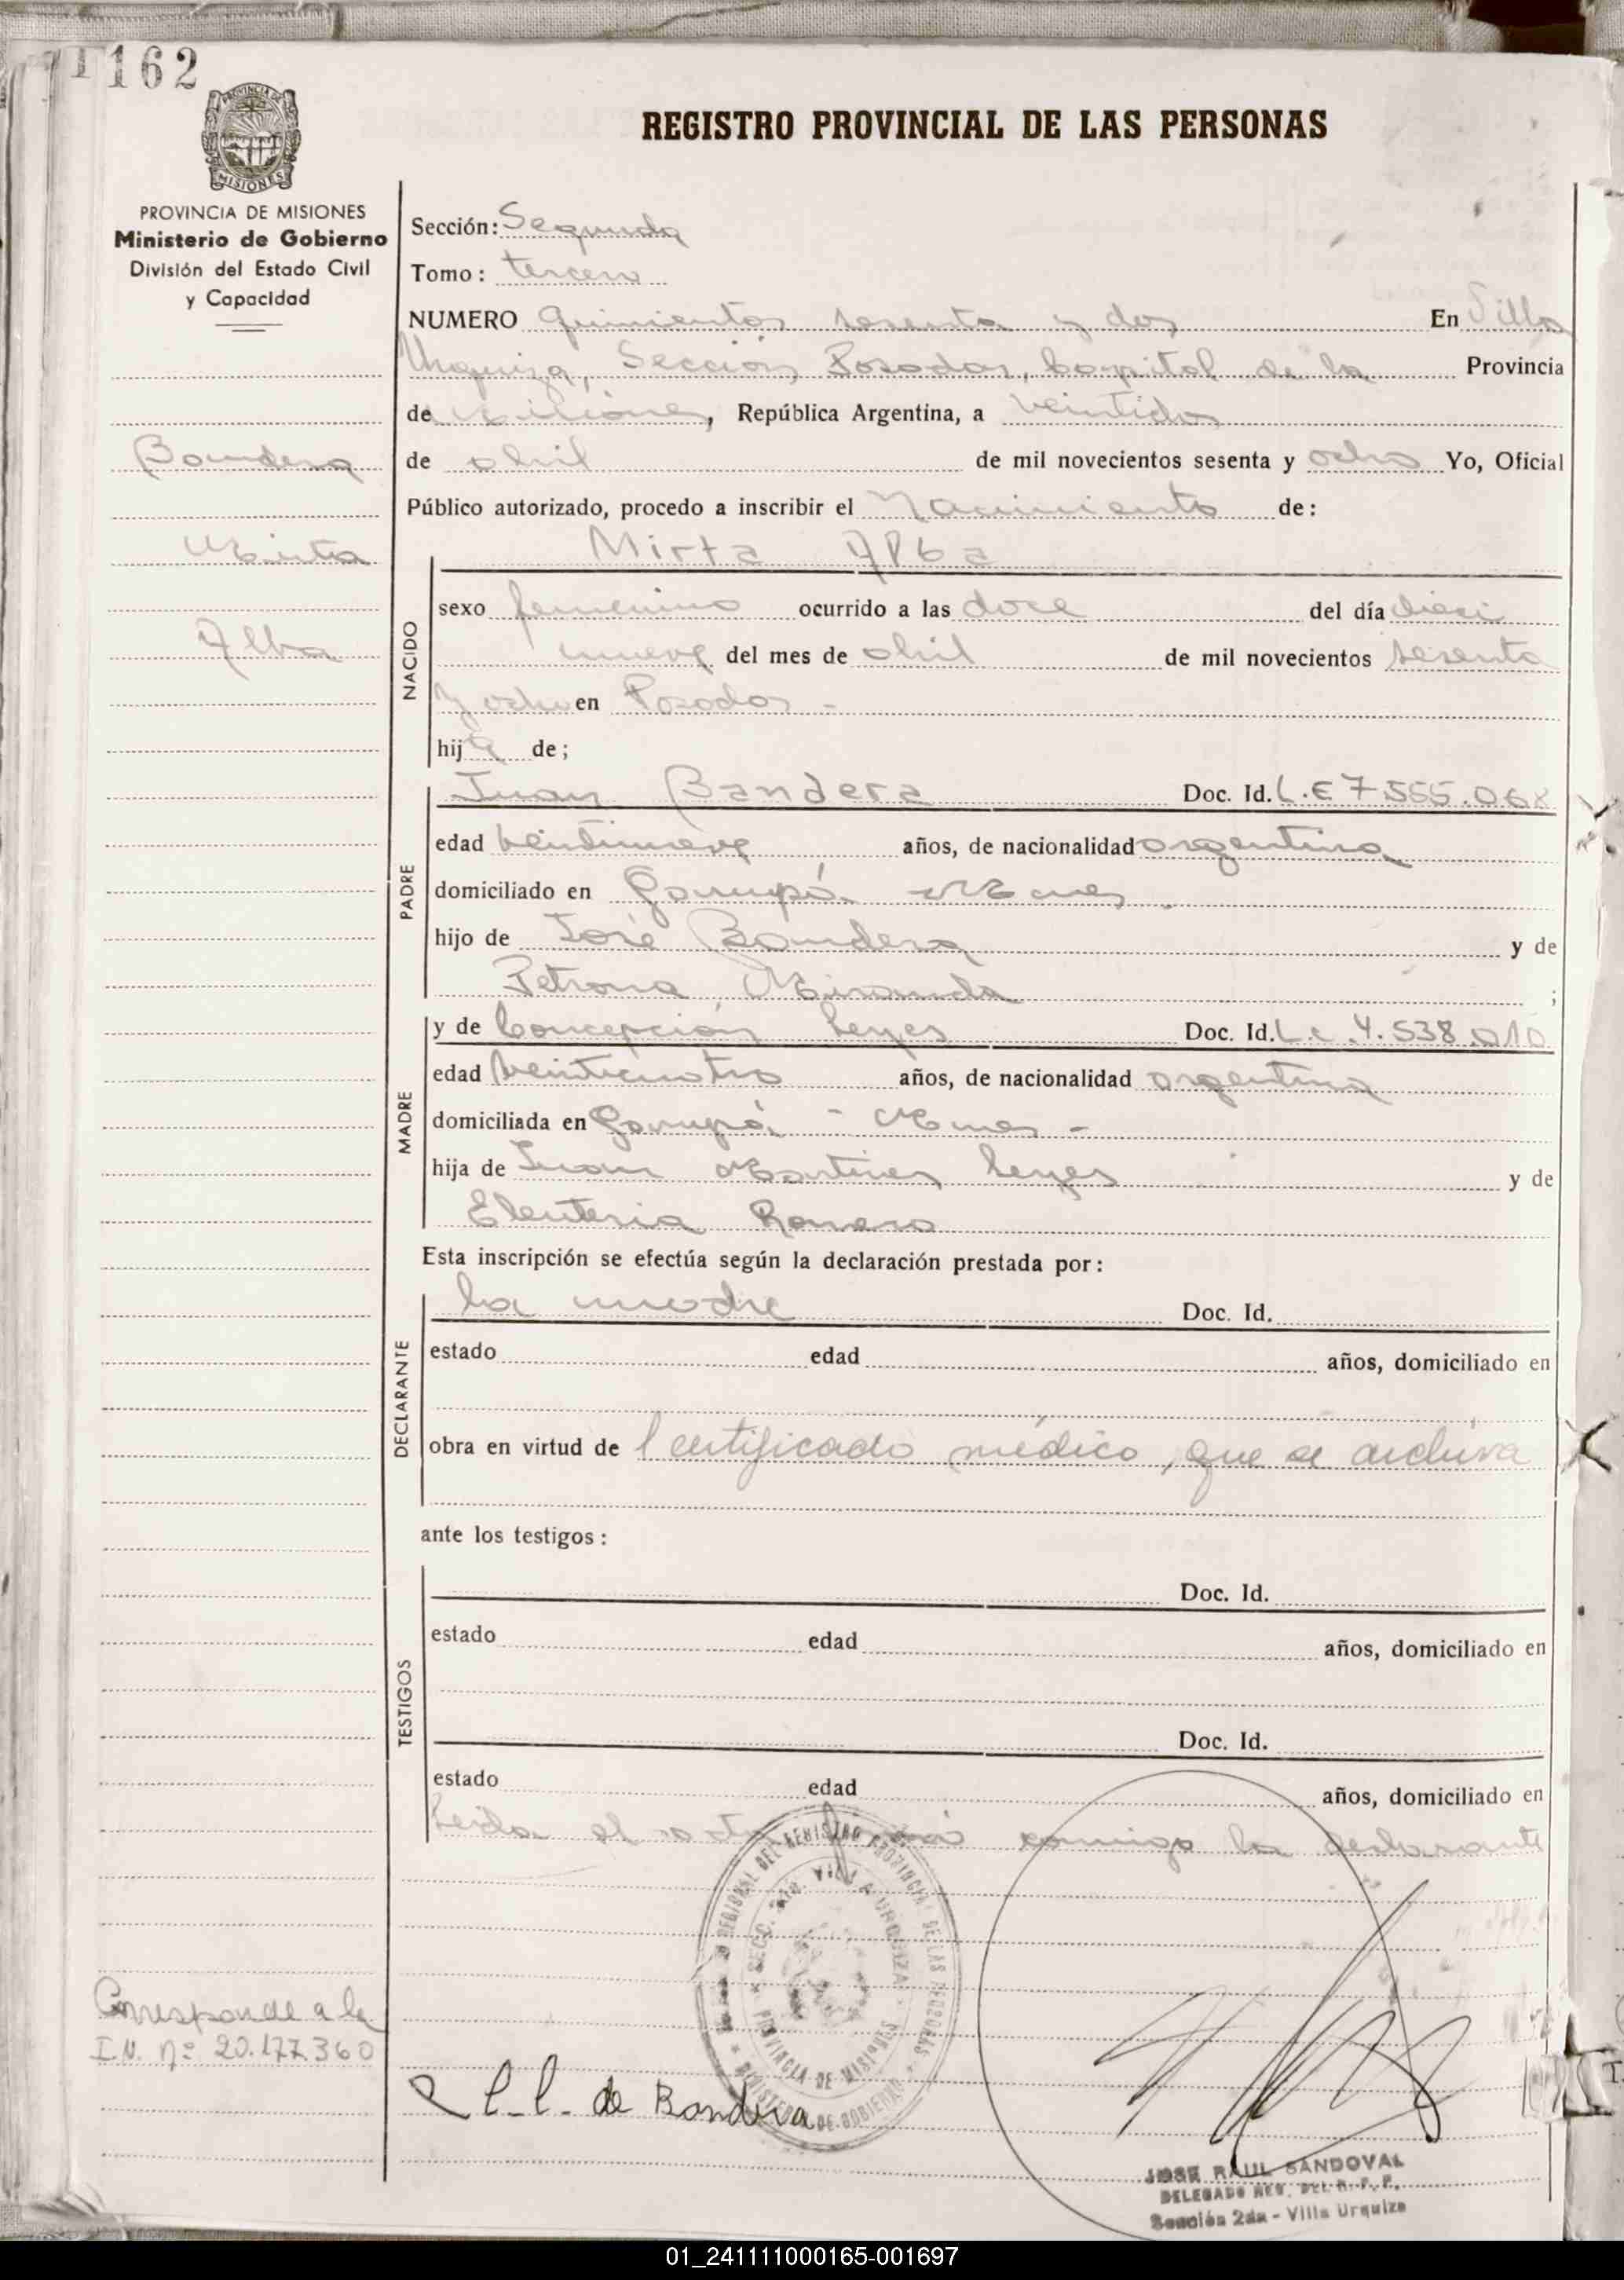 162
PROVINCIA DE
MISIONES
REGISTRO PROVINCIAL DE LAS PERSONAS
PROVINCIA DE MISIONES
Ministerio de Gobierno
División del Estado Civil
y Capacidad
Sección: Segunda
Tomo: tercero
NUMERO quinientos sesenta y dos En Villa
Urquiza, Sección Posadas, Capital de la Provincia
de Misiones, República Argentina, a veintidos
de abril de mil novecientos sesenta y ocho Yo, Oficial
Público autorizado, procedo a inscribir el Nacimiento de:
Bandera
Mirta
Alba
Mirta Alba
NACIDO
sexo femenino ocurrido a las doce del día dieci
nueve del mes de abril de mil novecientos sesenta
y ocho en Posadas -
hija de;
PADRE
Juan Bandera Doc. Id. L.E 7.555.068
edad veintinueve años, de nacionalidad argentina
domiciliado en Garupá. Mnes.
hijo de José Bandera y de
Petrona Miranda ;
MADRE
y de Concepción Leyes Doc. Id. L.C. 4.538.010
edad veinticuatro años, de nacionalidad argentina
domiciliada en Garupá. - Mnes -
hija de Juan Martires Leyes y de
Eleuteria Romero
Esta inscripción se efectúa según la declaración prestada por:
DECLARANTE
La madre Doc. Id.
estado edad años, domiciliado en
obra en virtud de l certificado médico, que se archiva
ante los testigos:
TESTIGOS
Doc. Id.
estado edad años, domiciliado en
Doc. Id.
estado edad años, domiciliado en
Leida el acta firmó conmigo la declarante
REGIONAL DEL REGISTRO PROVINCIAL DE LAS PERSONAS
SECC. 2da. VILLA URQUIZA
PROVINCIA DE MISIONES
MINISTERIO DE GOBIERNO
Corresponde a la
I.N. nº 20.177.360
C. L. de Bandera
JOSE RAUL SANDOVAL
DELEGADO REG. DEL R. P. P.
Sección 2da - Villa Urquiza
01_241111000165-001697